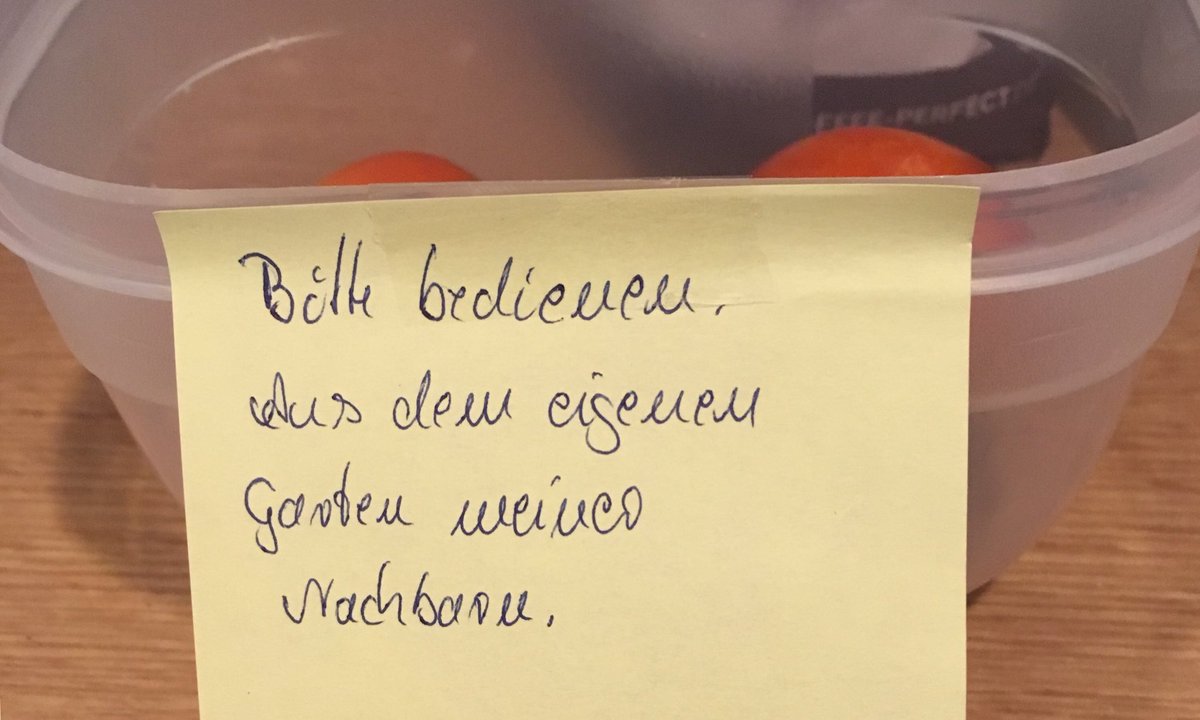 PERFECT
Bitte bedienen.
Aus dem eigenen
Garten meines
Nachbarn.